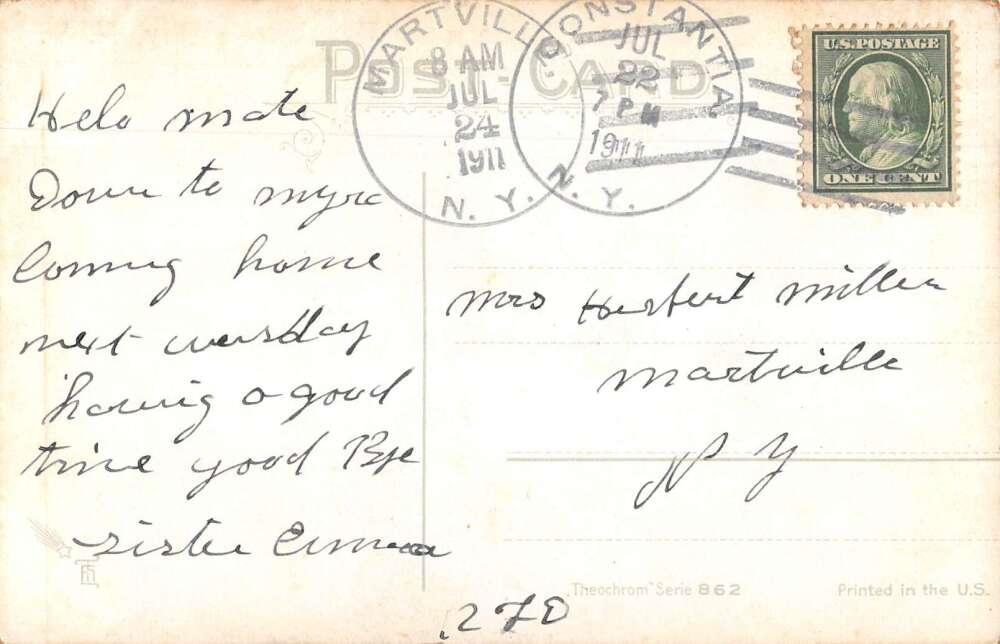 POST-CARD
MARTVILLE
8 AM
JUL
24
1911
N. Y.
CONSTANTIA
JUL
22
7 PM
1911
N. Y.
U.S. POSTAGE
ONE CENT
Helo mate
Down to myra
Coming home
next wensday
having a good
time good Bye
Sister Emma
Mrs Herbert Miller
Martville
N Y
RFD
"Theochrom" Serie 862
Printed in the U.S.